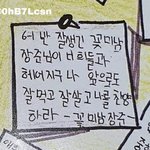 0hB7Lcsn
6-1반 잘생긴 꽃미남
장주님이 너희들과
헤어지구나 앞으로도
잘먹고 잘살고 나를 찬양
하라 - 꽃미남 장주 -